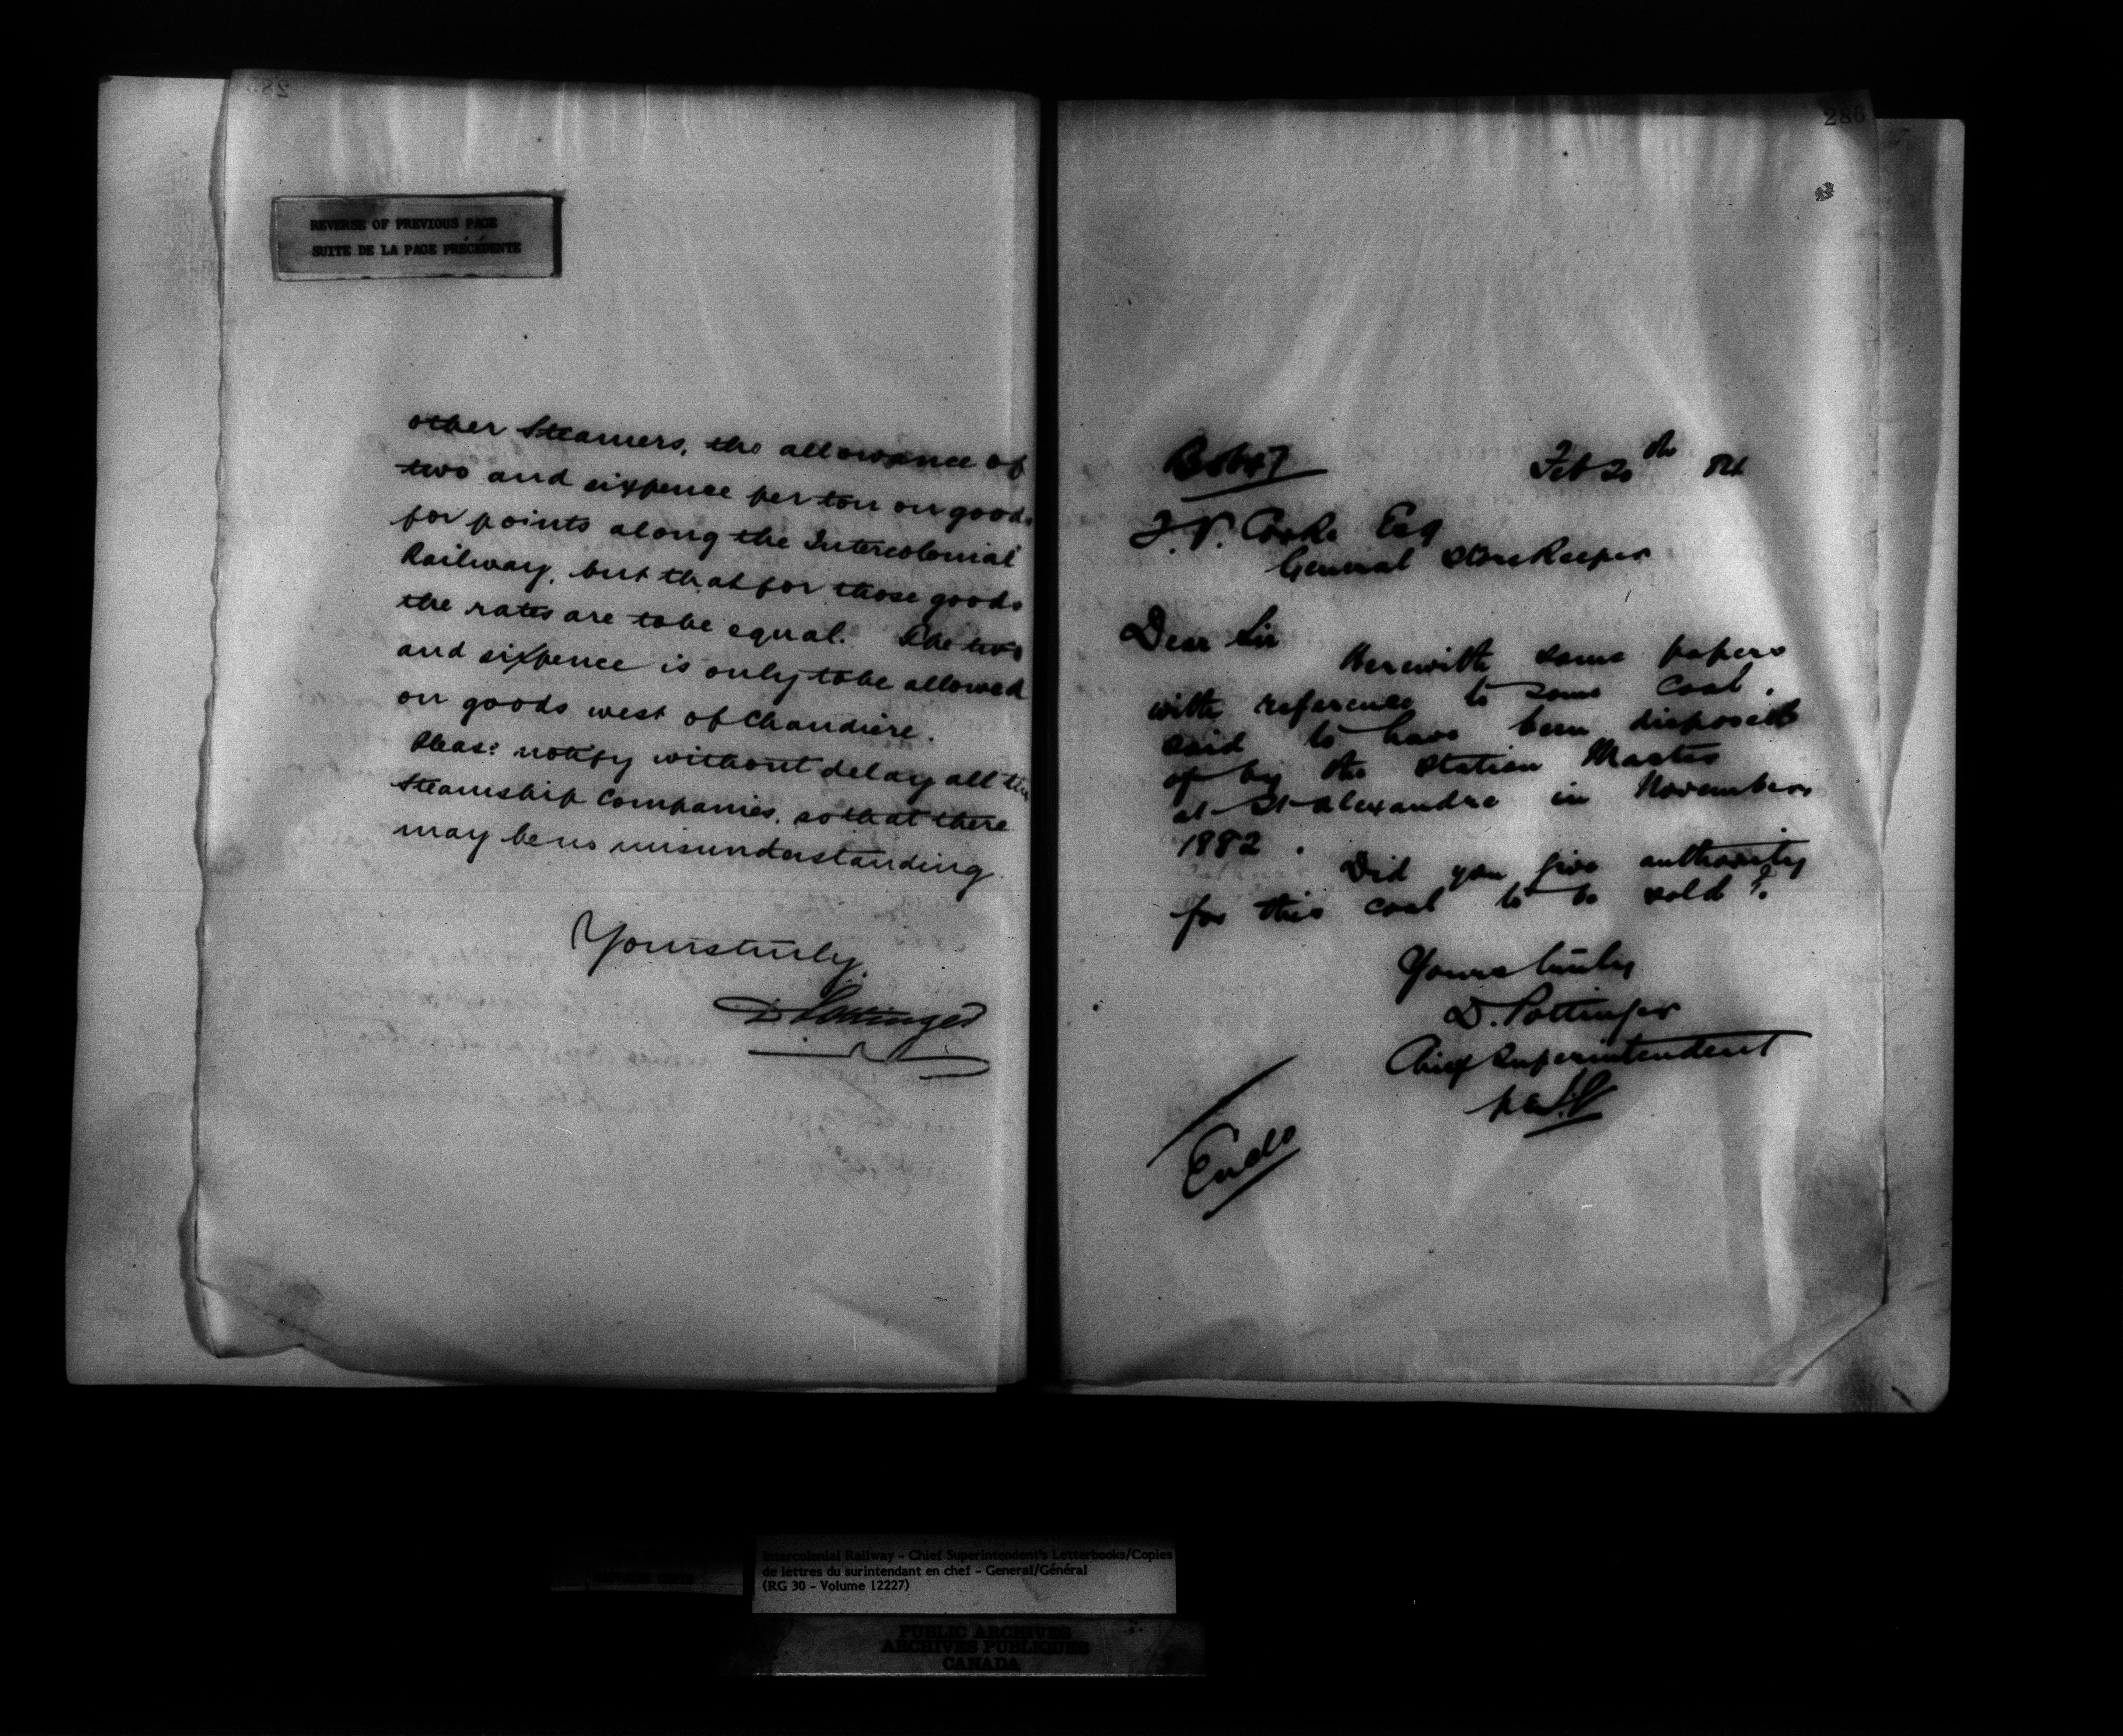 REVERSE OF PREVIOUS PAGE
SUITE DE LA PAGE PRÉCÉDENTE
other Steamers, the allowance of
two and sixpence per ton on goods
for points along the Intercolonial
Railway, but that for those goods
the rates are to be equal. The two
and sixpence is only to be allowed
on goods west of Chaudiere.
Please notify without delay all the
Steamship Companies, so that there
may be no misunderstanding.
Yours truly
D Pottinger
286
Feb 20th 84
Cooke Esq
General Storekeeper
Dear Sir
Herewith some papers
with reference to some coal,
said to have been disposed
of by the Station Master
at St Alexandre in November
1882.
Did you give authority
for this coal to be sold?
Yours truly
D. Pottinger
Chief Superintendent
Encls
Intercolonial Railway - Chief Superintendent's Letterbooks/Copies
de lettres du surintendant en chef - General/Général
(RG 30 - Volume 12227)
PUBLIC ARCHIVES
ARCHIVES PUBLIQUES
CANADA